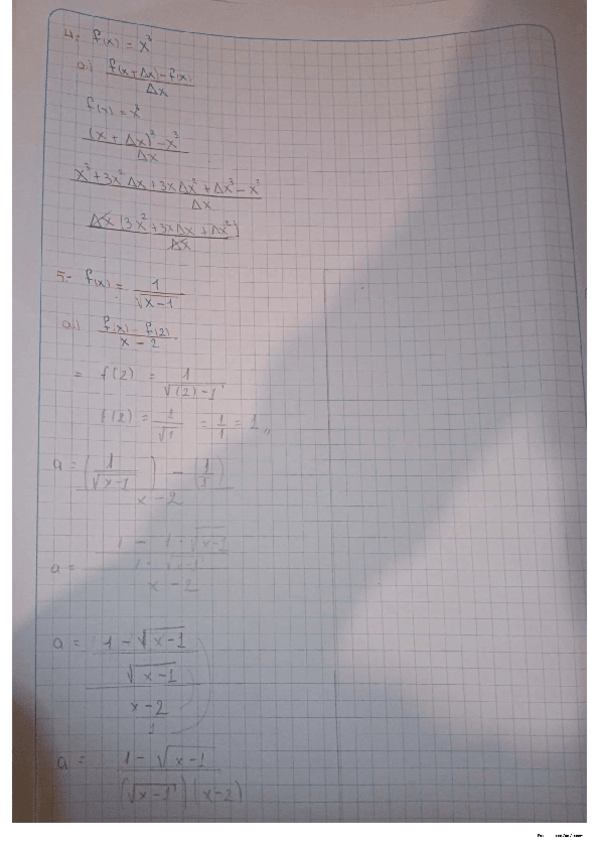 4.- f(x) = x³
a) f(x + Δx) - f(x) / Δx
f(x) = x³
(x + Δx)³ - x³ / Δx
x³ + 3x² Δx + 3x Δx² + Δx³ - x³ / Δx
Δx (3x² + 3xΔx + Δx²) / Δx
5.- f(x) = 1 / √x-1
a) f(x) - f(2) / x - 2
= f(2) = 1 / √(2)-1
f(2) = 1/√1 = 1/1 = 1,,
a = (1 / √x-1) - (1/1) / x - 2
a = 1 - 1·√x-1 / 1·√x-1 / x - 2
a = 1 - √x-1 / √x-1 / x - 2 / 1
a = 1 - √x-1 / (√x-1) (x-2)